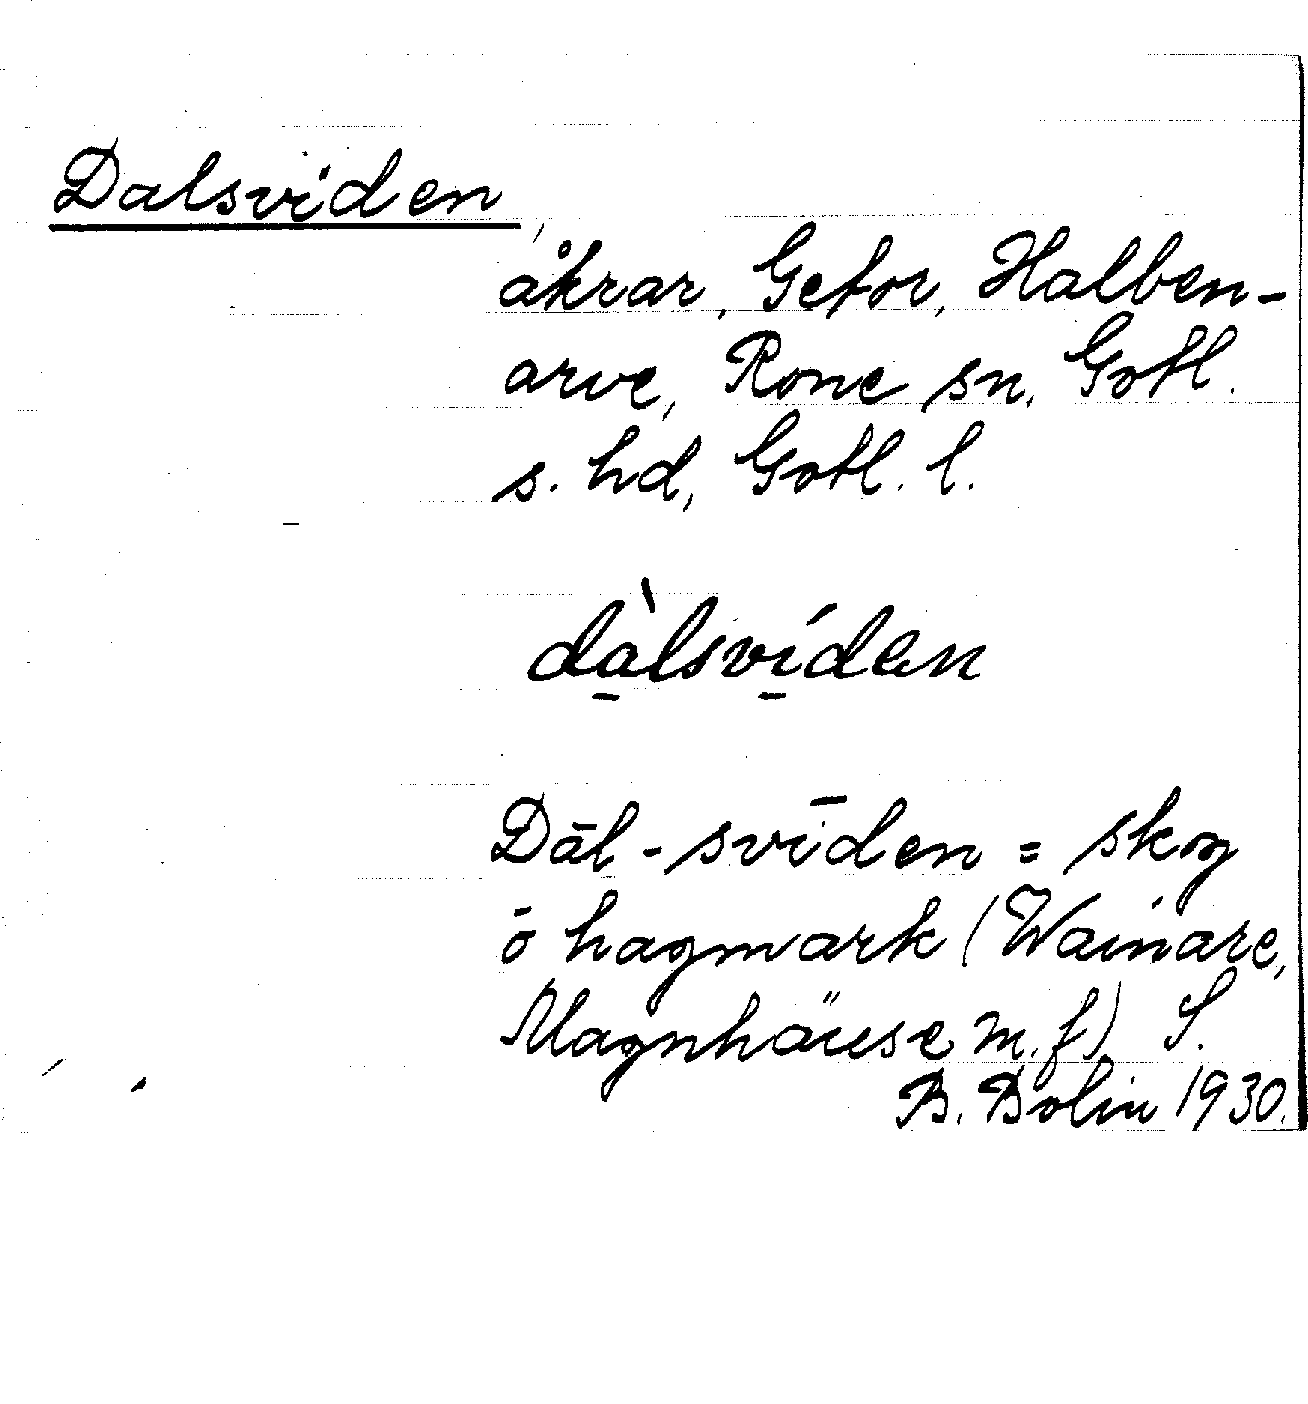 Dalsviden,
åkrar, Getor, Halben-
arve, Rone sn, Gotl.
s. hd, Gotl. l.
dàlsvíden
Dāl-svīden = skog
ō hagmark (Wainare,
Magnhäuse m. f) S.
B. Bolin 1930.